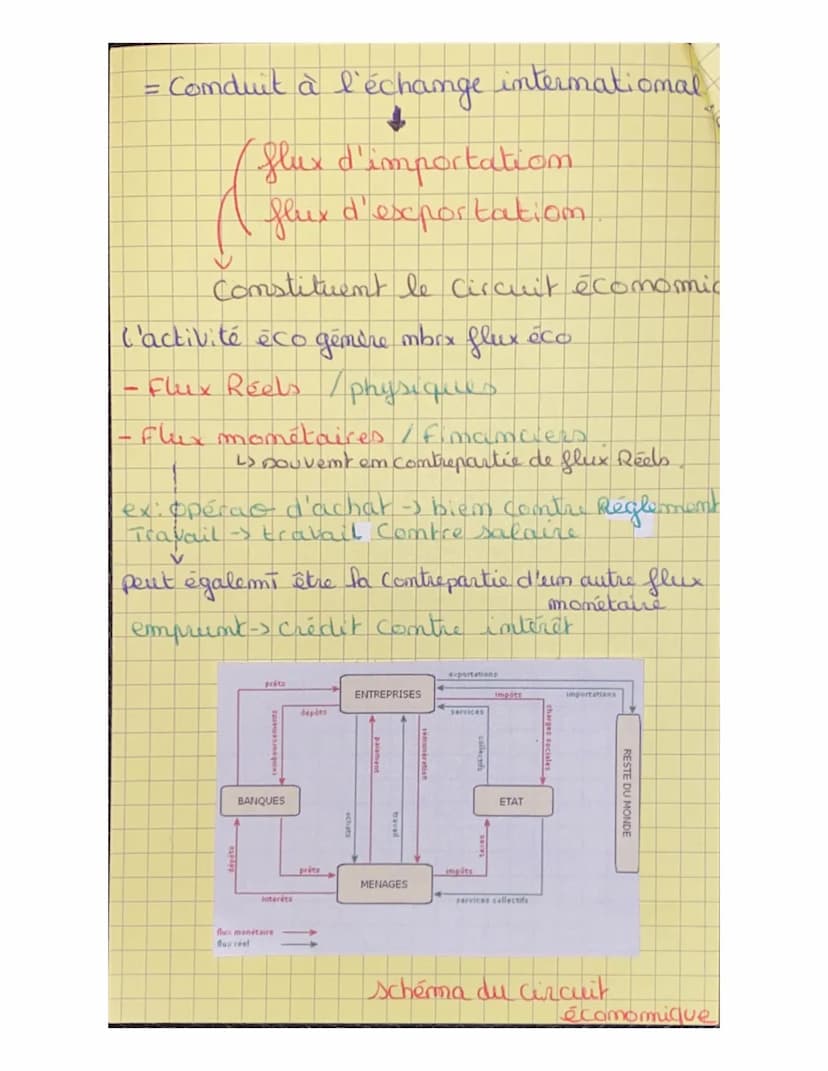 = Conduit à l'échange international
flux d'importation
flux d'exportation.
Constituent le circuit économic
L'activité éco génère nbrx flux éco
- Flux Réels / physiques
- Flux monétaires / Financiers
↳ souvent en contrepartie de flux Réels.
ex: opérao d'achat → bien contre Réglement
Travail → travail contre salaire
peut égalemt être la contrepartie d'un autre flux
monétaire
emprunt → crédit contre intérêt
exportations
prêts
ENTREPRISES
impôts
importations
dépôts
services
remboursements
paiement
rémunération
collectifs
charges sociales
RESTE DU MONDE
BANQUES
ETAT
achats
travail
dépôts
prêts
MENAGES
impôts
intérêts
services collectifs
flux monétaire
flux réel
schéma du circuit
économique